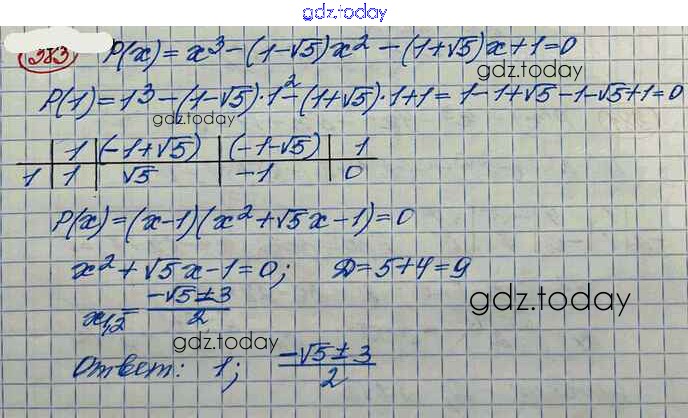 gdz.today
383 P(x) = x³ - (1-√5)x² - (1+√5)x + 1 = 0
gdz.today
P(1) = 1³ - (1-√5)·1² - (1+√5)·1 + 1 = 1 - 1 + √5 - 1 - √5 + 1 = 0
gdz.today
1 (-1+√5) (-1-√5) 1
1 1 √5 -1 0
P(x) = (x-1)(x² + √5x - 1) = 0
x² + √5x - 1 = 0; D = 5 + 4 = 9
x₁,₂ = (-√5 ± 3)/2
gdz.today
gdz.today
Ответ: 1; (-√5 ± 3)/2